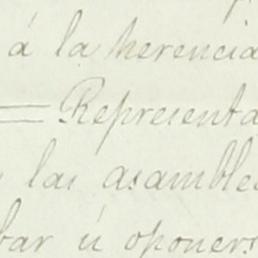 á la herencia
= Representa
las asamble
bar ú oponers